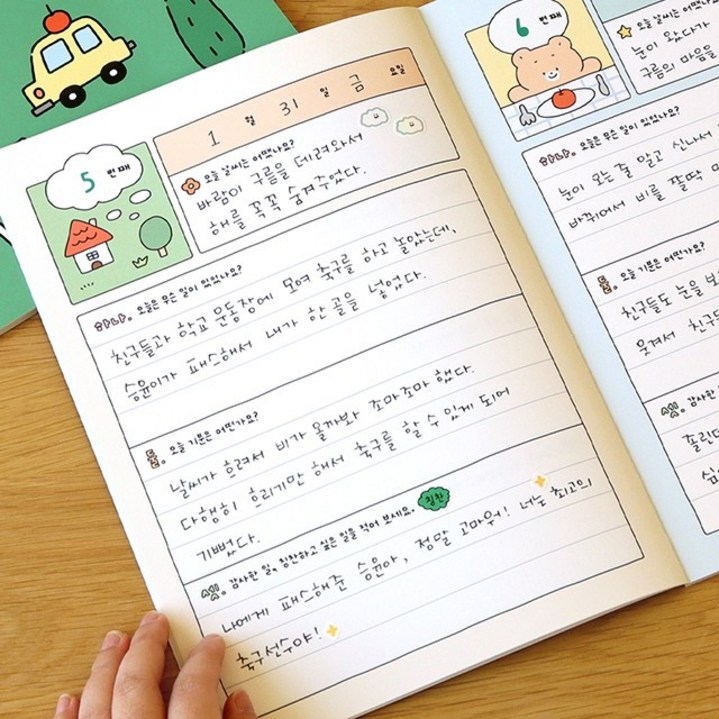 5 번째
1 월 31 일 금 요일
오늘 날씨는 어땠나요?
바람이 구름을 데려와서
해를 꼭꼭 숨겨주었다.
하나. 오늘은 무슨 일이 있었나요?
친구들과 학교 운동장에 모여 축구를 하고 놀았는데,
승윤이가 패스해서 내가 한 골을 넣었다.
둘. 오늘 기분은 어떤가요?
날씨가 흐려서 비가 올까봐 조마조마 했다.
다행히 흐리기만 해서 축구를 할 수 있게 되어
기뻤다.
셋. 감사한 일, 칭찬하고 싶은 일을 적어 보세요. 칭찬
나에게 패스해준 승윤아, 정말 고마워! 너는 최고의
축구선수야!
6 번째
오늘 날씨는 어땠나요?
눈이 왔다가
구름의 마음을
하나. 오늘은 무슨 일이 있었나요?
눈이 오는 줄 알고 신나서
바뀌어서 비를 쫄딱
둘. 오늘 기분은 어떤가요?
친구들도 눈을 보
웃겨서 친구들
셋. 감사한